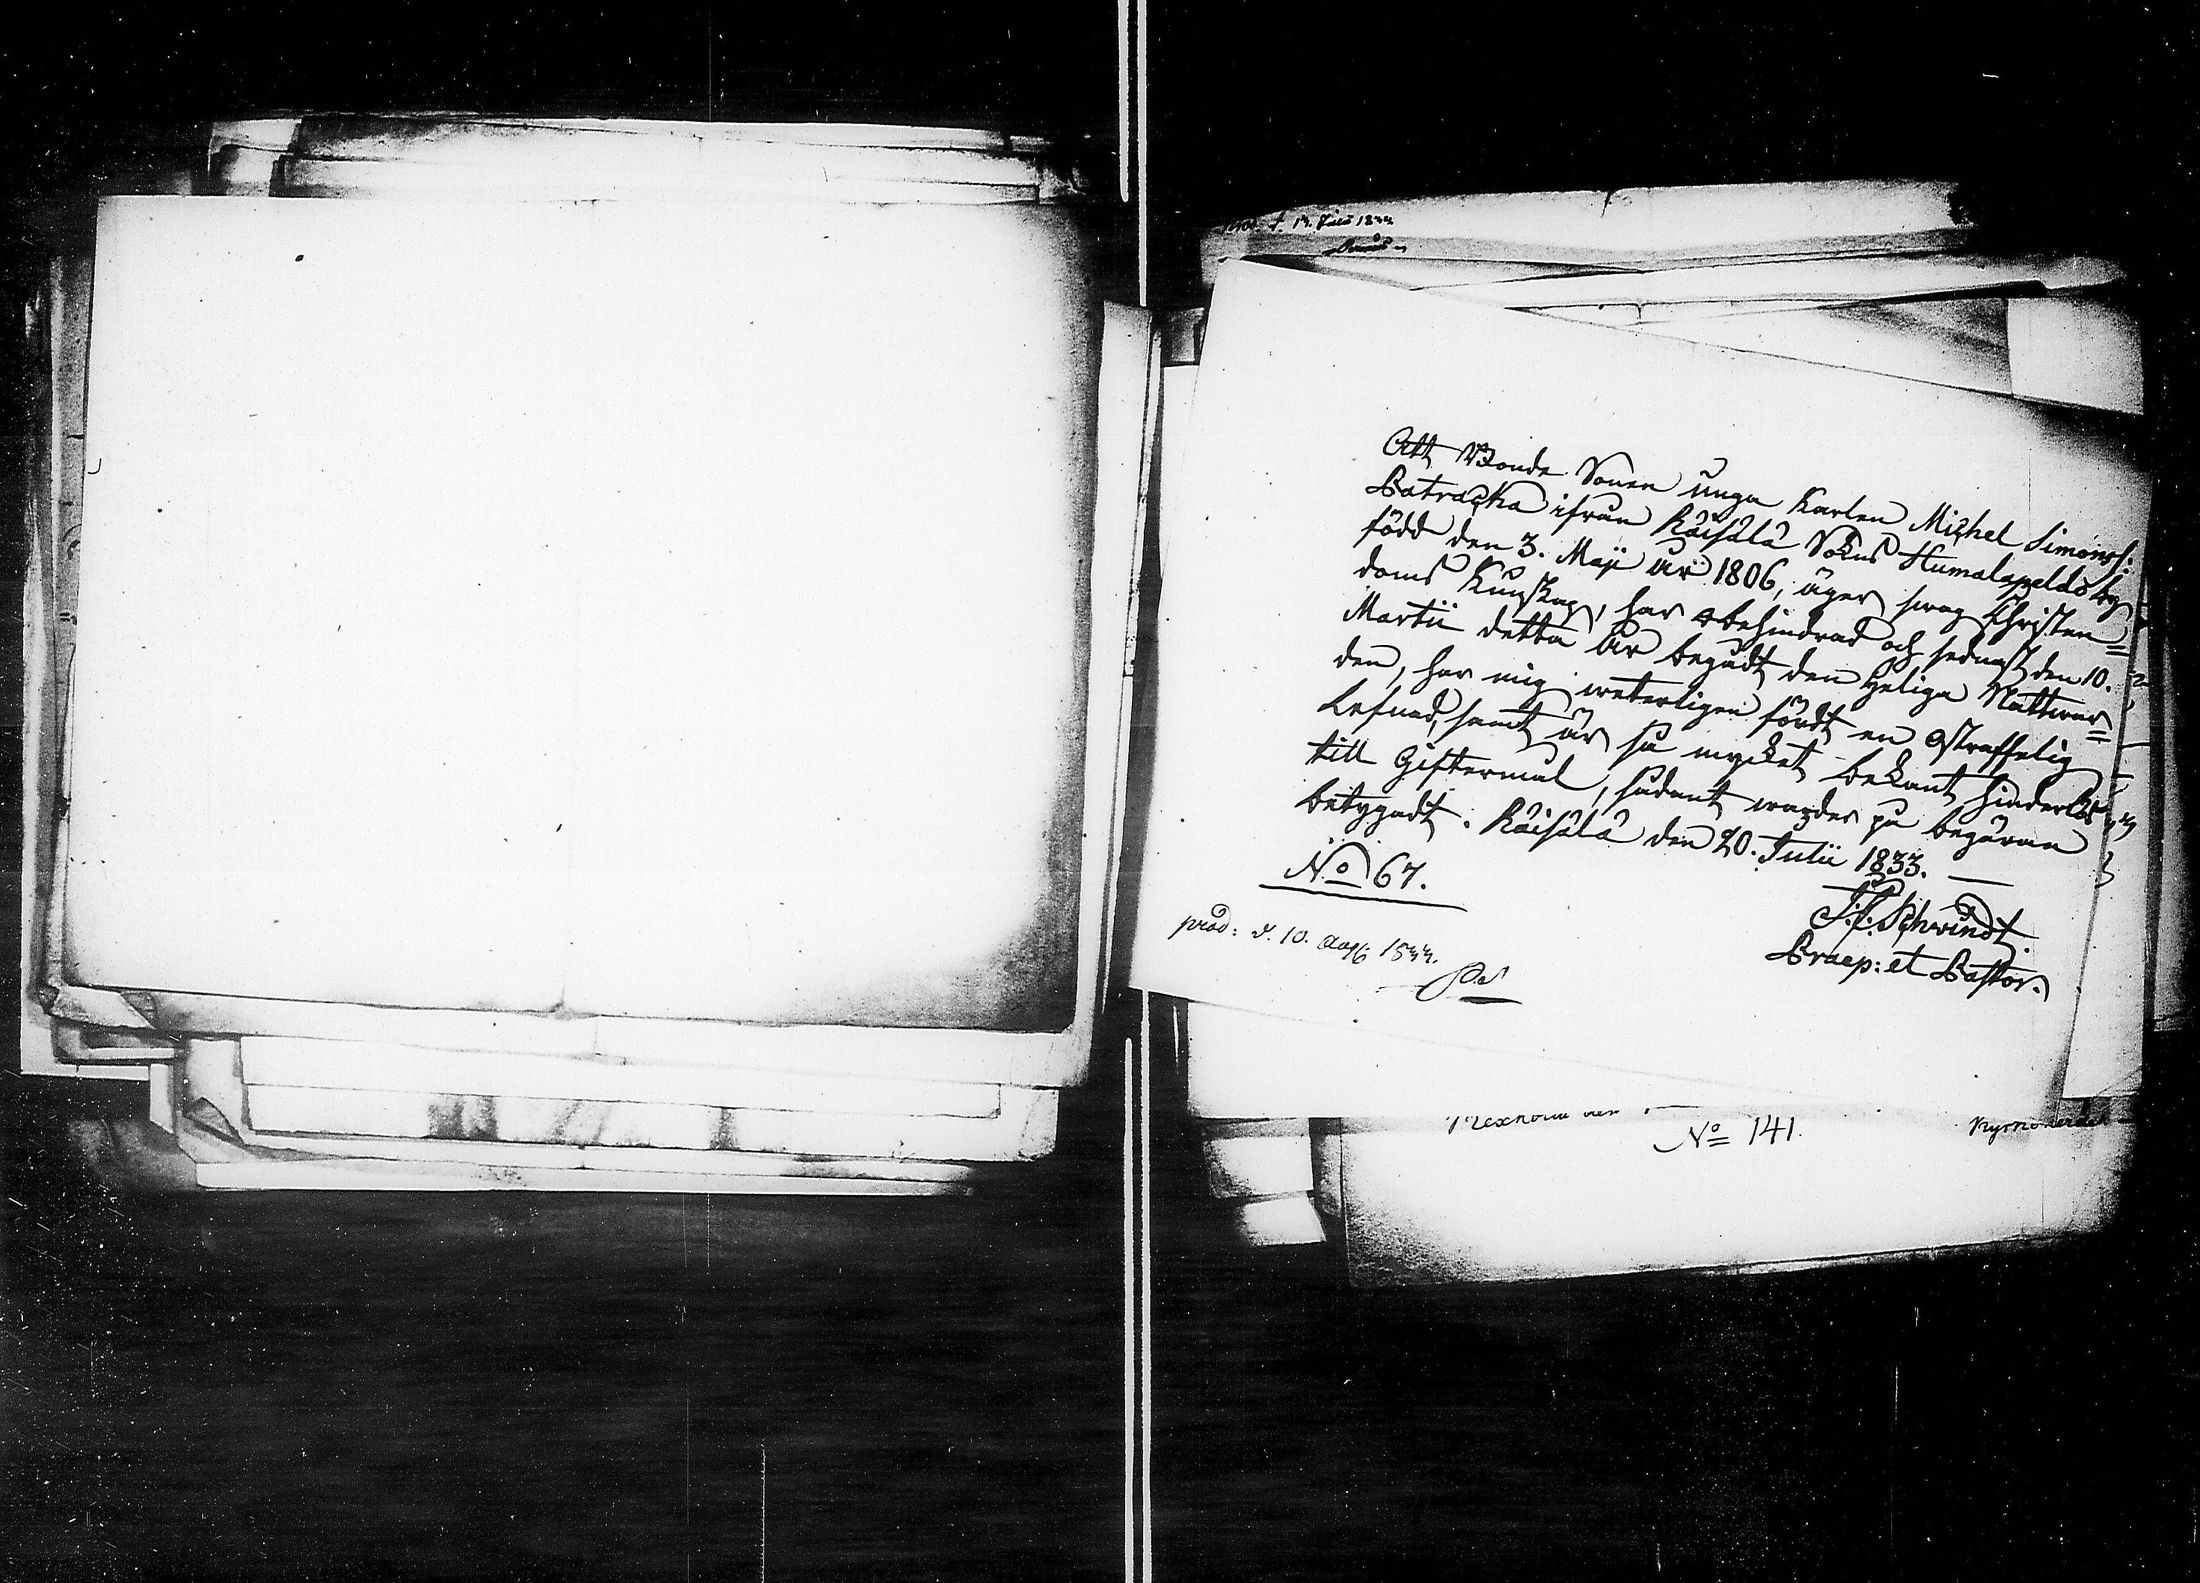 Att Bonde Sonen unga Karlen Michel Simonss:
Patracka ifrån Räisälä Sokns Humalapeldo by
född den 3. Maji år 1806, äger swag Christen=
doms Kunskap, har obehindrad och sednast den 10.
Martii detta år begådt den Heliga Nattwar=
den, har mig weterligen fördt en Ostraffelig
Lefnad, samt är så mycket bekant hinderlös
till Giftermål, sådant warder på begäran
betygadt. Räisälä den 20. Julii 1833.
No 67.
J. F. Schwindt.
Praep: et Pastor.
prod: d. 10. Aug. 1833.
No 141.